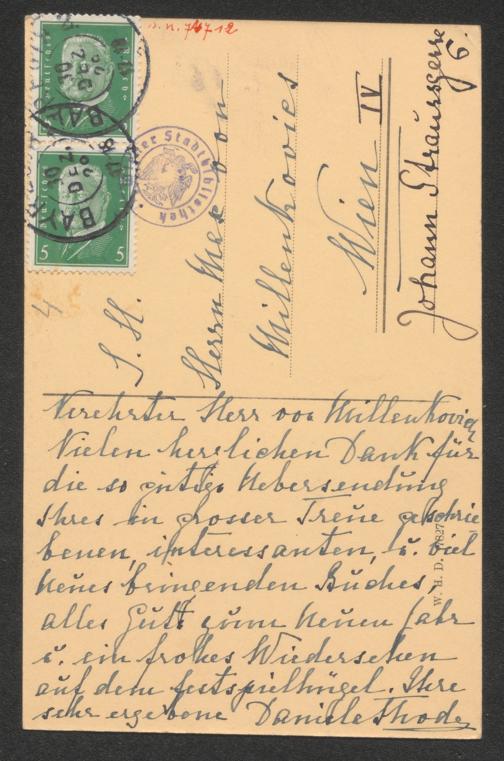 I. N. 74712
Deutsches Reich
BAYREUTH
5 5
der Stadtbibliothek
4
S. H.
Herrn Max von
Millenkovics
Wien IV
Johann Straussgasse
6.
Verehrter Herr von Millenkovics
Vielen herzlichen Dank für
die so gütige Uebersendung
Ihres in grosser Treue geschrie
benen, interessanten, u. viel
Neues bringenden Buches,
alles Gute zum Neuen Jahr
u. ein frohes Wiedersehen
auf dem Festspielhügel. Ihre
sehr ergebene Daniela Thode
W. H. D.